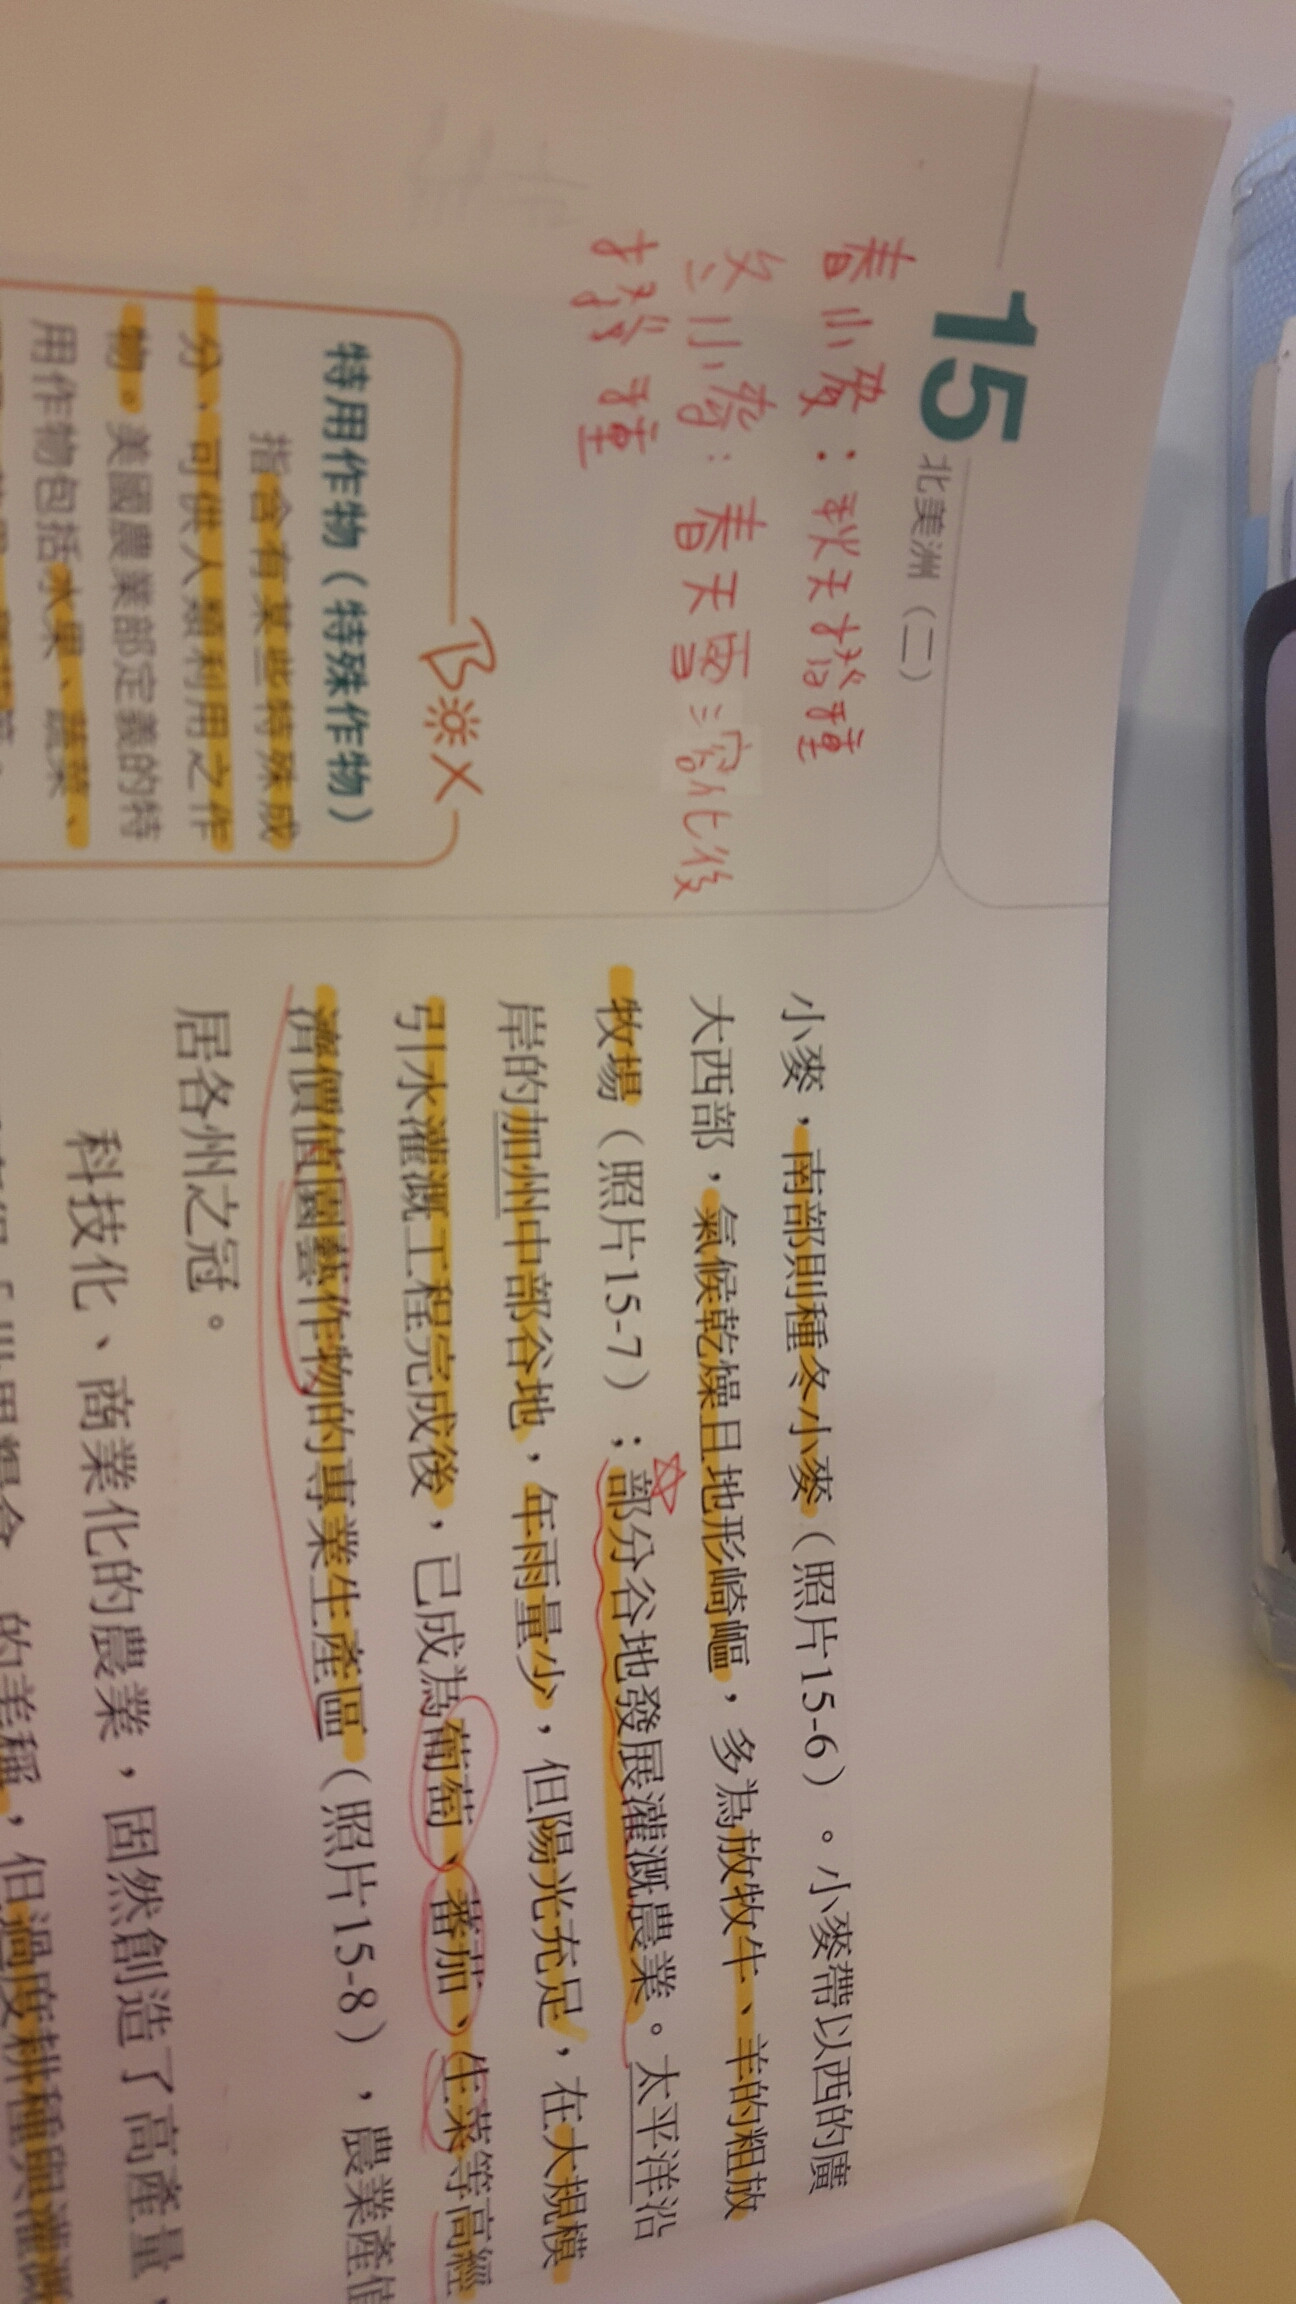 15 北美洲（二）
春小麥：秋天播種
冬小麥：春天雪溶化後
播種
BOX
特用作物（特殊作物）
指含有某些特殊成
分、可供人類利用之作
物。美國農業部定義的特
用作物包括水果、蔬菜、
小麥，南部則種冬小麥（照片15-6）。小麥帶以西的廣
大西部，氣候乾燥且地形崎嶇，多為放牧牛、羊的粗放
牧場（照片15-7）；部分谷地發展灌溉農業。太平洋沿
岸的加州中部谷地，年雨量少，但陽光充足，在大規模
引水灌溉工程完成後，已成為葡萄、番茄、生菜等高經
濟價值園藝作物的專業生產區（照片15-8），農業產值
居各州之冠。
科技化、商業化的農業，固然創造了高產量，
的美稱，但過度耕種與灌溉